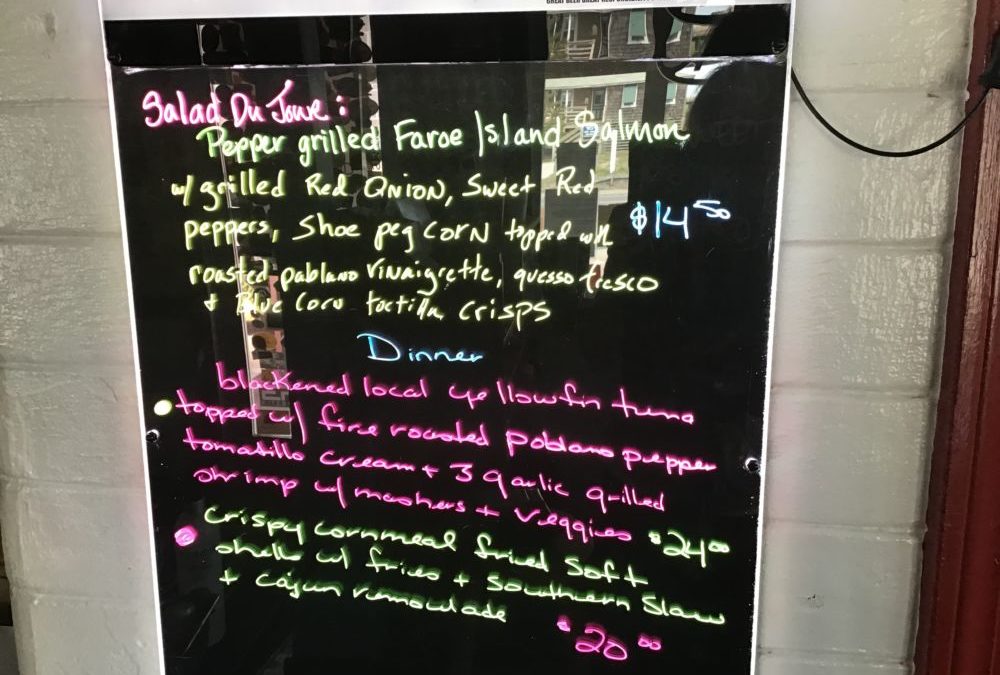 Salad Du Jour:
Pepper grilled Faroe Island Salmon
w/ grilled Red Onion, Sweet Red
peppers, Shoe peg corn topped with
$14.50
roasted pablano Vinaigrette, quesso fresco
+ Blue Corn tortilla crisps
Dinner
blackened local yellowfin tuna
topped w/ fire roasted poblano pepper
tomatillo cream + 3 garlic grilled
shrimp w/ mashers + veggies
$24.00
Crispy cornmeal fried soft
shells w/ fries + Southern Slaw
+ cajun remoulade
$20.00